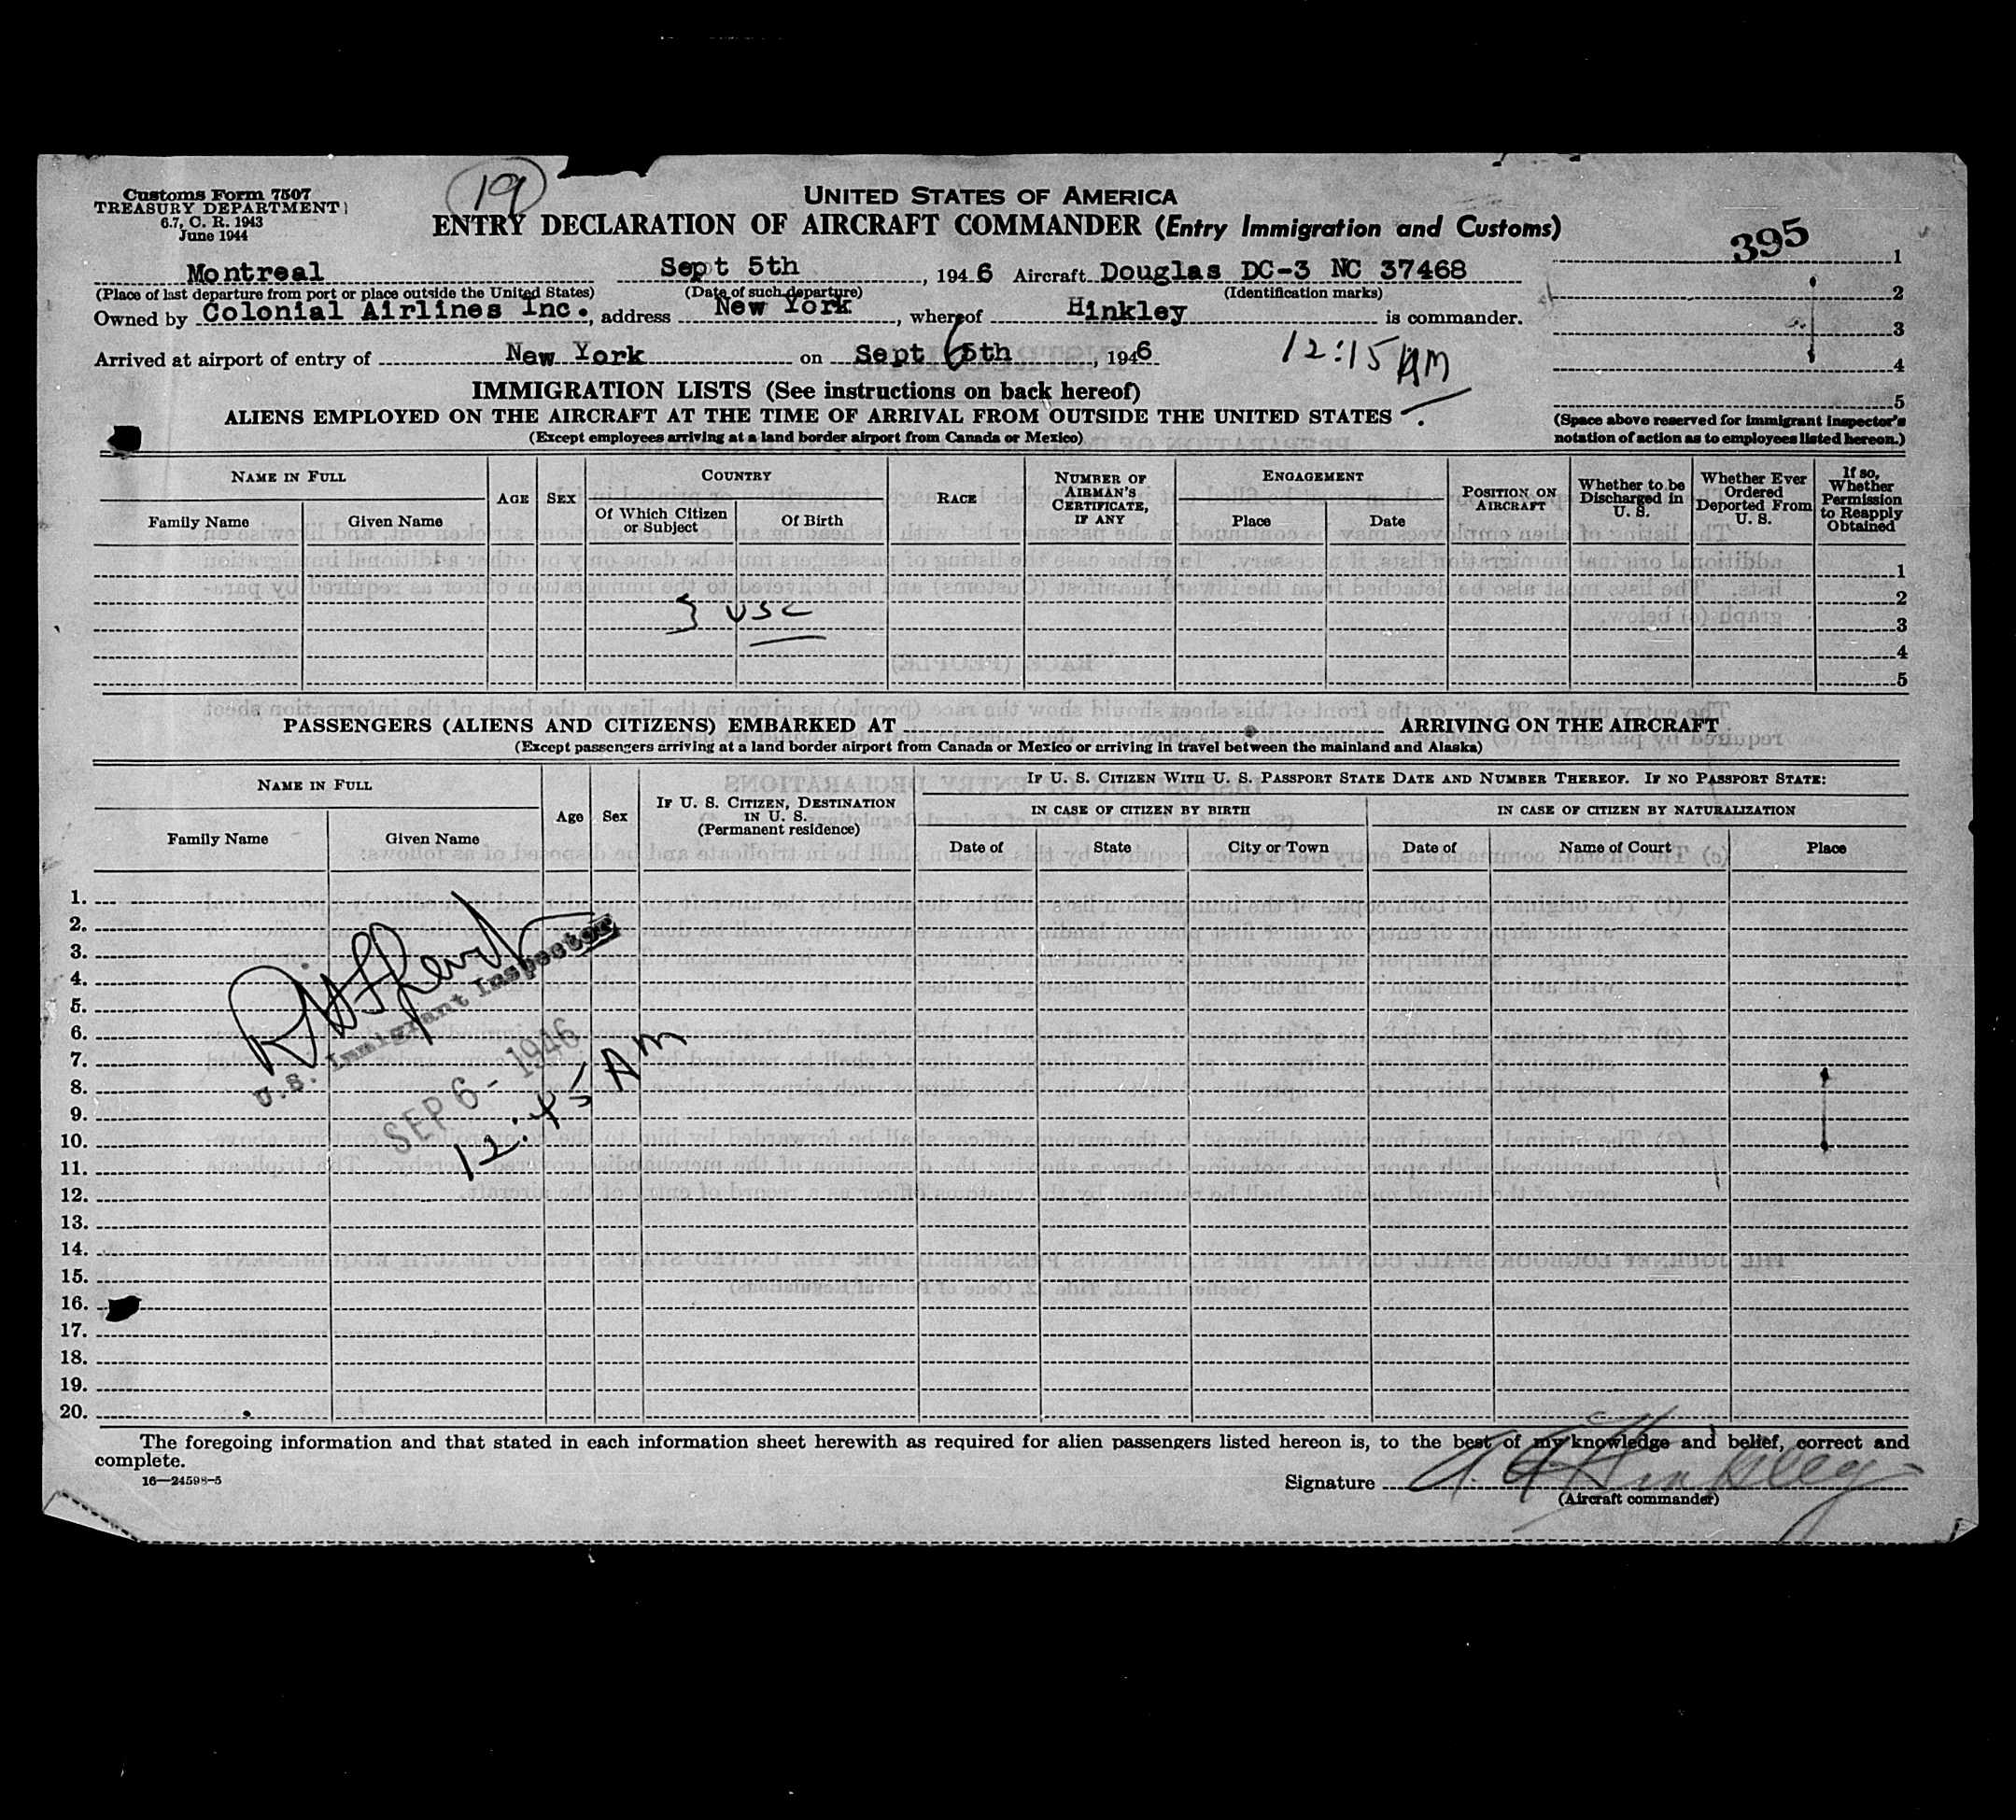 19
Customs Form 7507
TREASURY DEPARTMENT
6.7, C. R. 1943
June 1944
UNITED STATES OF AMERICA
ENTRY DECLARATION OF AIRCRAFT COMMANDER (Entry Immigration and Customs)
395
Montreal Sept 5th, 1946 Aircraft Douglas DC-3 NC 37468
(Place of last departure from port or place outside the United States) (Date of such departure) (Identification marks)
Owned by Colonial Airlines Inc., address New York, whereof Hinkley is commander.
Arrived at airport of entry of New York on Sept 6th, 1946 12:15 AM
1
2
3
4
5
(Space above reserved for immigrant inspector's
notation of action as to employees listed hereon.)
IMMIGRATION LISTS (See instructions on back hereof)
ALIENS EMPLOYED ON THE AIRCRAFT AT THE TIME OF ARRIVAL FROM OUTSIDE THE UNITED STATES
(Except employees arriving at a land border airport from Canada or Mexico)
NAME IN FULL
Family Name Given Name
AGE SEX
COUNTRY
Of Which Citizen or Subject
Of Birth
RACE
NUMBER OF AIRMAN'S CERTIFICATE, IF ANY
ENGAGEMENT
Place Date
POSITION ON AIRCRAFT
Whether to be Discharged in U. S.
Whether Ever Ordered Deported From U. S.
If so, Whether Permission to Reapply Obtained
1
2
3 USC
3
4
5
PASSENGERS (ALIENS AND CITIZENS) EMBARKED AT ARRIVING ON THE AIRCRAFT
(Except passengers arriving at a land border airport from Canada or Mexico or arriving in travel between the mainland and Alaska)
NAME IN FULL
Family Name Given Name
Age Sex
IF U. S. CITIZEN, DESTINATION IN U. S.
(Permanent residence)
IF U. S. CITIZEN WITH U. S. PASSPORT STATE DATE AND NUMBER THEREOF. IF NO PASSPORT STATE:
IN CASE OF CITIZEN BY BIRTH
IN CASE OF CITIZEN BY NATURALIZATION
Date of State City or Town Date of Name of Court Place
1.
2.
3.
4.
5.
6.
7.
8.
9.
10.
11.
12.
13.
14.
15.
16.
17.
18.
19.
20.
U.S. Immigrant Inspector
SEP 6 - 1946
12:45 AM
The foregoing information and that stated in each information sheet herewith as required for alien passengers listed hereon is, to the best of my knowledge and belief, correct and
complete.
16—24598-5
Signature Hinkley
(Aircraft commander)